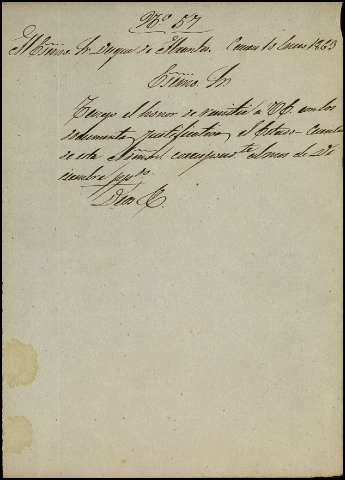 Nº 57
Al Esmo. Sr. Duque de 10 Enero 1863
Esmo. Sr.
Tengo el honor de remitir a V.E. con los
documentos justificativos el Estado-Cuenta
de esta correspond.te al mes de Di
ciembre ppdo.
Dios &